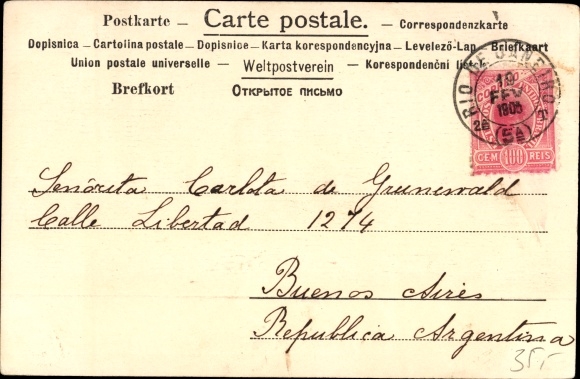 Postkarte – Carte postale. – Correspondenzkarte
Dopisnica – Cartolina postale – Dopisnice – Karta korespondencyjna – Levelező-Lap Briefkaart
Union postale universelle – Weltpostverein – Korespondenční lístek
Brefkort ОТКРЫТОЕ ПИСЬМО
RIO DE JANEIRO
19
FEV
1905
2ª T
(5A)
CEM 100 REIS
Señorita Carlota de Grunewald
Calle Libertad 1274
Buenos Aires
Republica Argentina